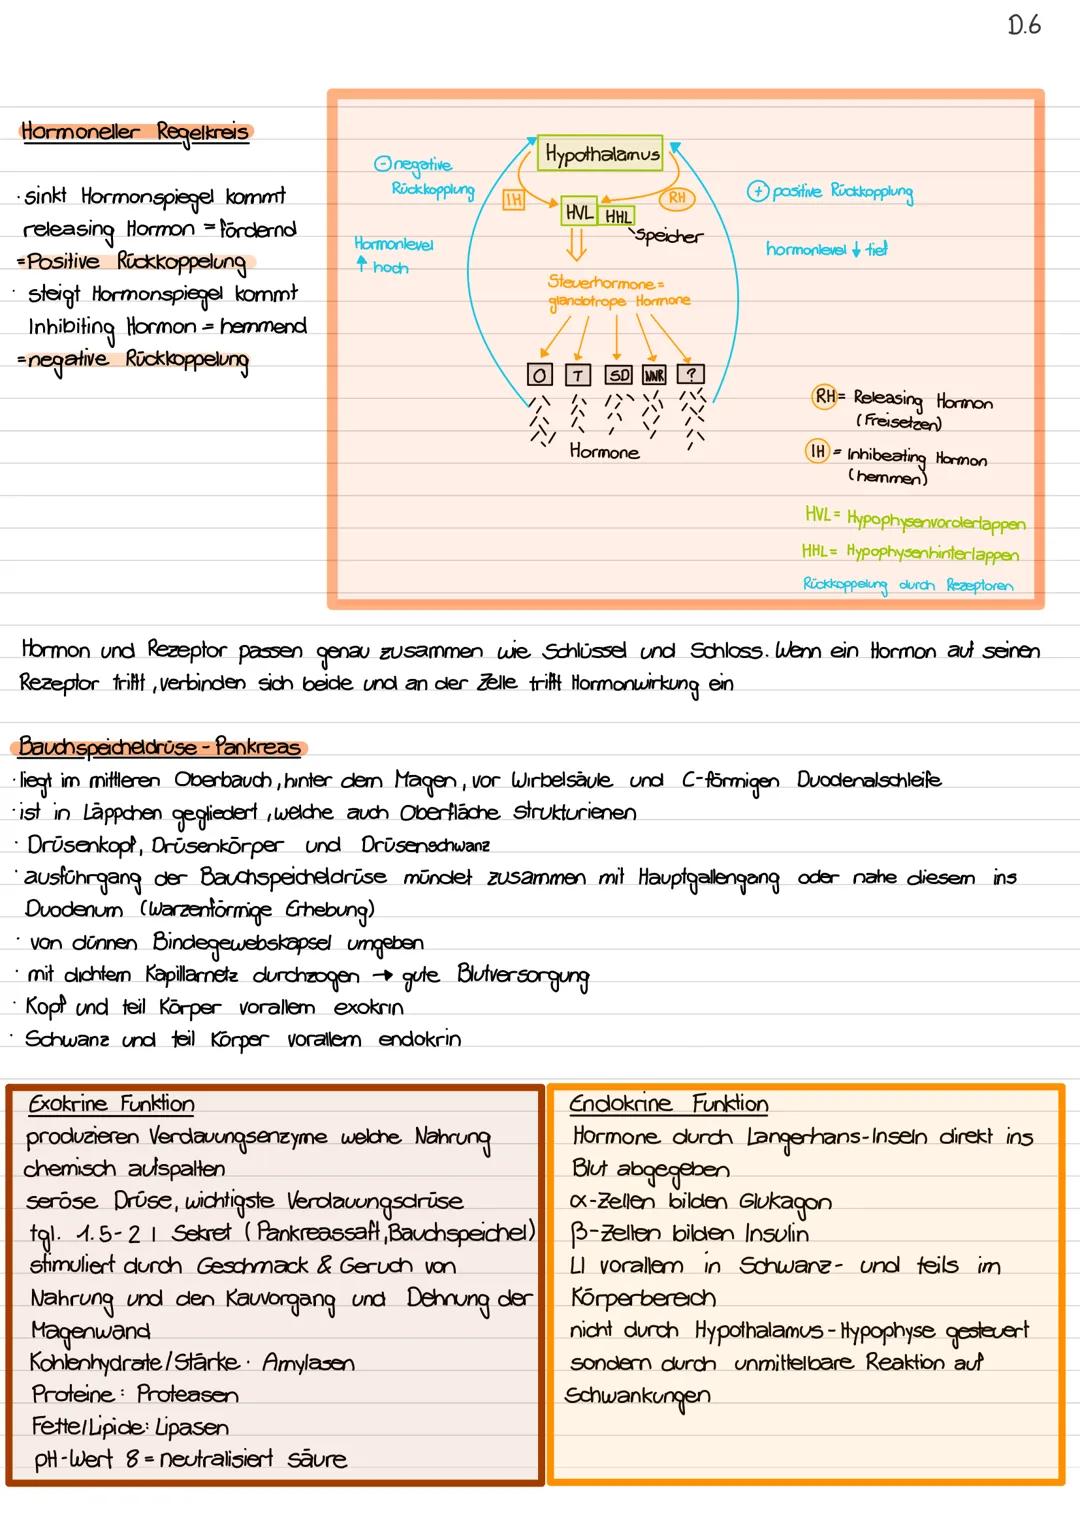 D.6
Hormoneller Regelkreis
· sinkt Hormonspiegel kommt
releasing Hormon = fördernd
= Positive Rückkoppelung
· steigt Hormonspiegel kommt
Inhibiting Hormon = hemmend
= negative Rückkoppelung
Hypothalamus
⊖ negative
Rückkopplung
IH
RH
⊕ positive Rückopplung
HVL HHL
Speicher
Hormonlevel
↑ hoch
hormonlevel ↓ tief
Steuerhormone =
glandotrope Hormone
O T SD NNR ?
Hormone
RH = Releasing Hormon
(Freisetzen)
IH = Inhibeating Hormon
(hemmen)
HVL = Hypophysenvorderlappen
HHL = Hypophysenhinterlappen
Rückkoppelung durch Rezeptoren
Hormon und Rezeptor passen genau zusammen wie Schlüssel und Schloss. Wenn ein Hormon auf seinen
Rezeptor trifft, verbinden sich beide und an der Zelle trifft Hormonwirkung ein
Bauchspeicheldrüse - Pankreas
· liegt im mittleren Oberbauch, hinter dem Magen, vor Wirbelsäule und C-förmigen Duodenalschleife
· ist in Läppchen gegliedert, welche auch Oberfläche strukturienen
· Drüsenkopf, Drüsenkörper und Drüsenschwanz
· ausführgang der Bauchspeicheldrüse mündet zusammen mit Hauptgallengang oder nahe diesem ins
Duodenum (Warzenförmige Erhebung)
· von dünnen Bindegewebskapsel umgeben
· mit dichtem Kapillarnetz durchzogen → gute Blutversorgung
· Kopf und teil Körper vorallem exokrin
· Schwanz und teil Körper vorallem endokrin
Exokrine Funktion
produzieren Verdauungsenzyme welche Nahrung
chemisch aufspalten
seröse Drüse, wichtigste Verdauungsdrüse
tgl. 1.5-2 l Sekret (Pankreassaft, Bauchspeichel)
stimuliert durch Geschmack & Geruch von
Nahrung und den Kauvorgang und Dehnung der
Magenwand
Kohlenhydrate/Stärke: Amylasen
Proteine: Proteasen
Fette/Lipide: Lipasen
pH-Wert 8 = neutralisiert säure
Endokrine Funktion
Hormone durch Langerhans-Inseln direkt ins
Blut abgegeben
α-Zellen bilden Glukagon
β-Zellen bilden Insulin
LI vorallem in Schwanz- und teils im
Körperbereich
nicht durch Hypothalamus-Hypophyse gesteuert
sondern durch unmittelbare Reaktion auf
Schwankungen